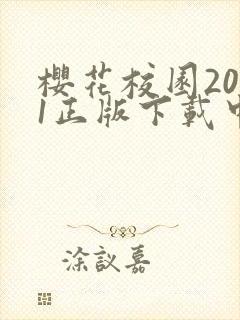 櫻花校園20
1正版下載中
涂議嘉